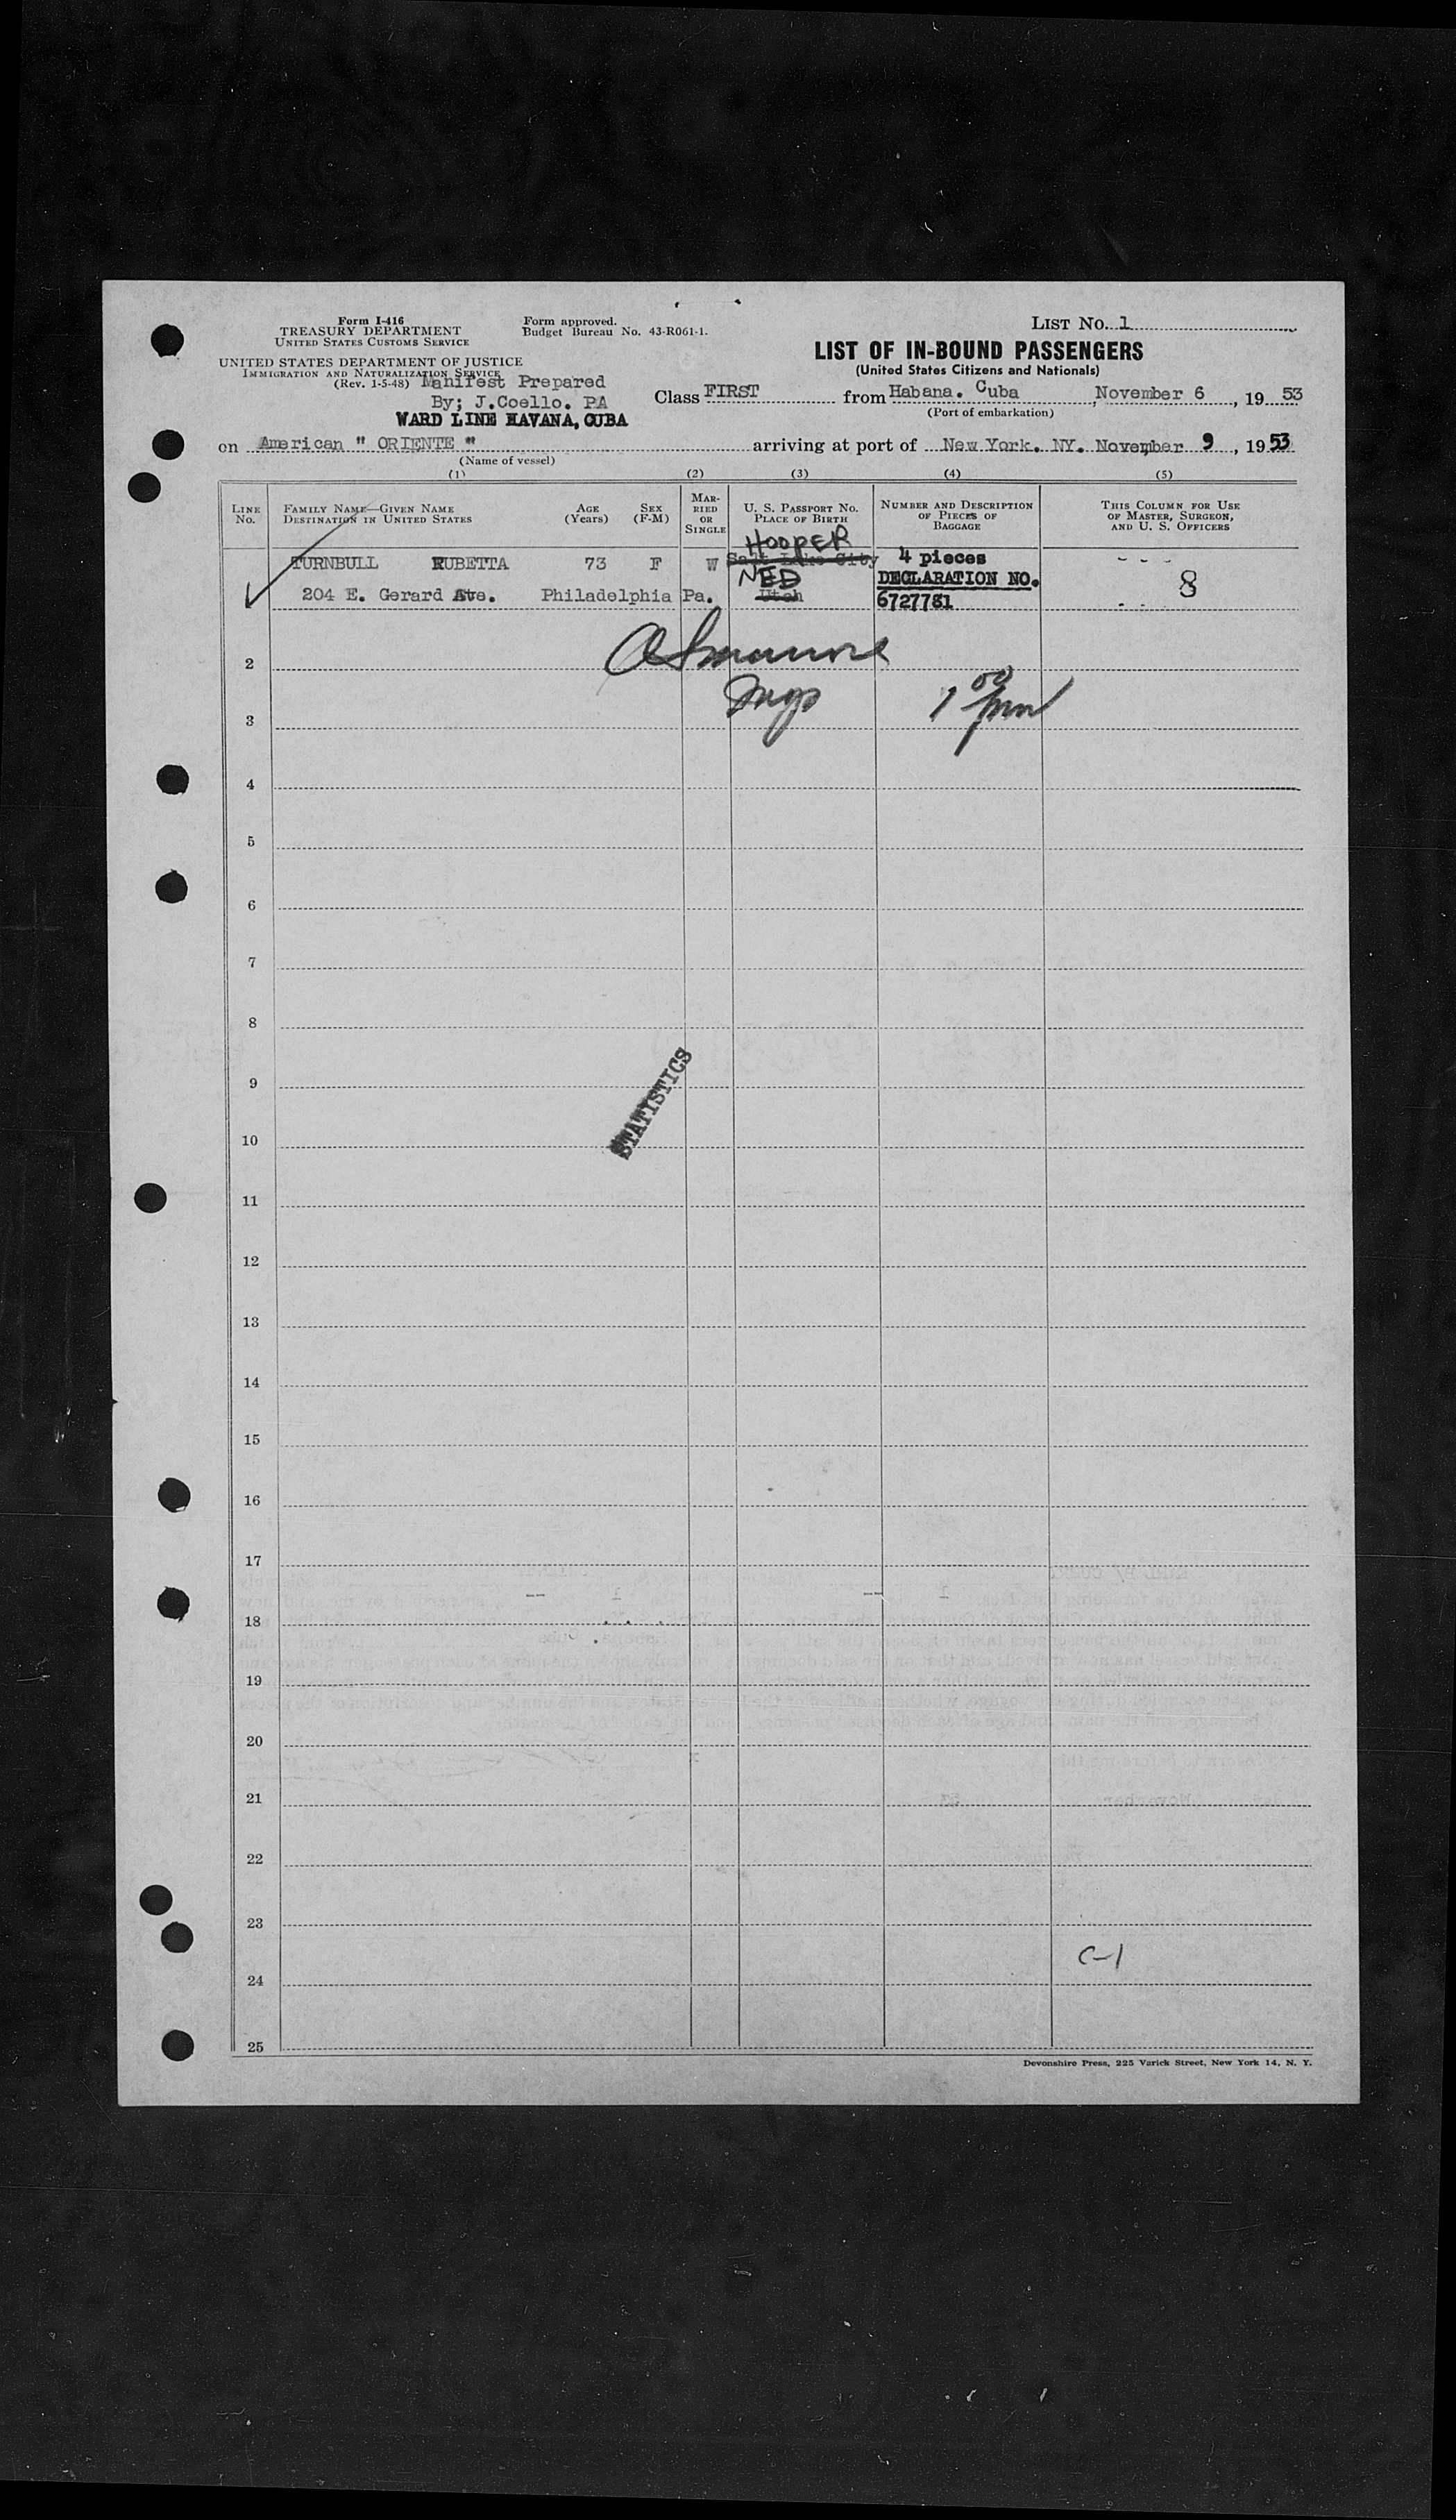 Form I-416
TREASURY DEPARTMENT
UNITED STATES CUSTOMS SERVICE
Form approved.
Budget Bureau No. 43-R061-1.
LIST No. 1
UNITED STATES DEPARTMENT OF JUSTICE
IMMIGRATION AND NATURALIZATION SERVICE
(Rev. 1-5-48) Manifest Prepared
By; J.Coello. PA
WARD LINE HAVANA, CUBA
LIST OF IN-BOUND PASSENGERS
(United States Citizens and Nationals)
Class FIRST from Habana. Cuba, November 6, 19 53
(Port of embarkation)
on American " ORIENTE " arriving at port of New York. NY. November 9, 19 53
(Name of vessel)
(1) (2) (3) (4) (5)
LINE No.
FAMILY NAME—GIVEN NAME
DESTINATION IN UNITED STATES
AGE (Years)
SEX (F-M)
MARRIED OR SINGLE
U. S. PASSPORT NO.
PLACE OF BIRTH
NUMBER AND DESCRIPTION OF PIECES OF BAGGAGE
THIS COLUMN FOR USE OF MASTER, SURGEON, AND U. S. OFFICERS
HOOPER
TURNBULL RUBETTA 73 F W Salt Lake City 4 pieces - - -
NED DECLARATION NO. 8
204 E. Gerard Ave. Philadelphia Pa. Utah 6727781
2
3
4
5
6
7
8
9
STATISTICS
10
11
12
13
14
15
16
17
18
19
20
21
22
23
C-1
24
25
Devonshire Press, 225 Varick Street, New York 14, N. Y.